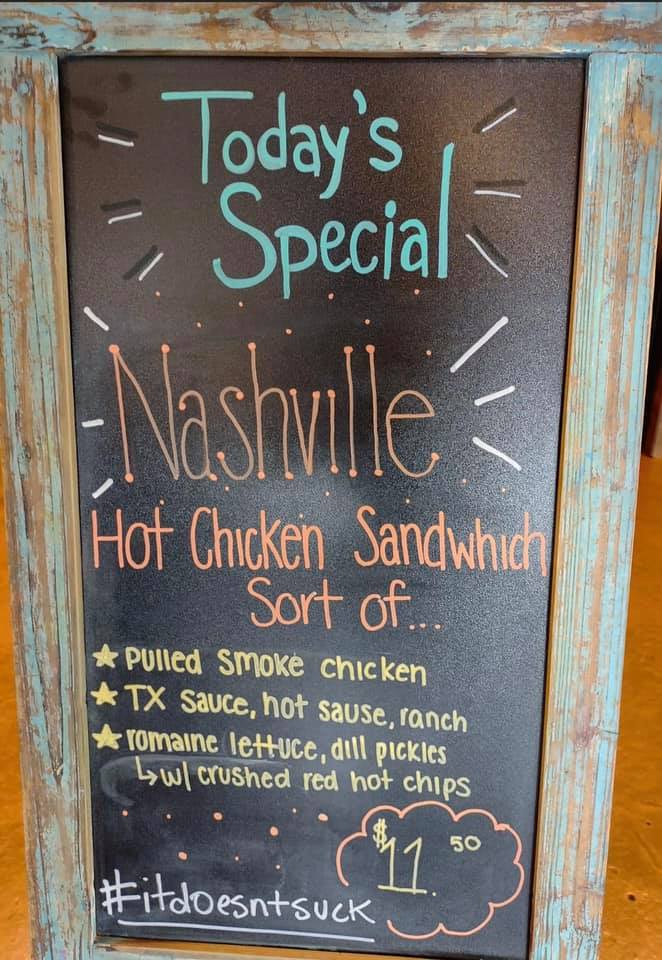 Today's
Special
Nashville
Hot Chicken Sandwhich
Sort of...
★ Pulled Smoke chicken
★ TX Sauce, hot sause, ranch
★ romaine lettuce, dill pickles
↳ w/ crushed red hot chips
$11.50
#itdoesntsuck